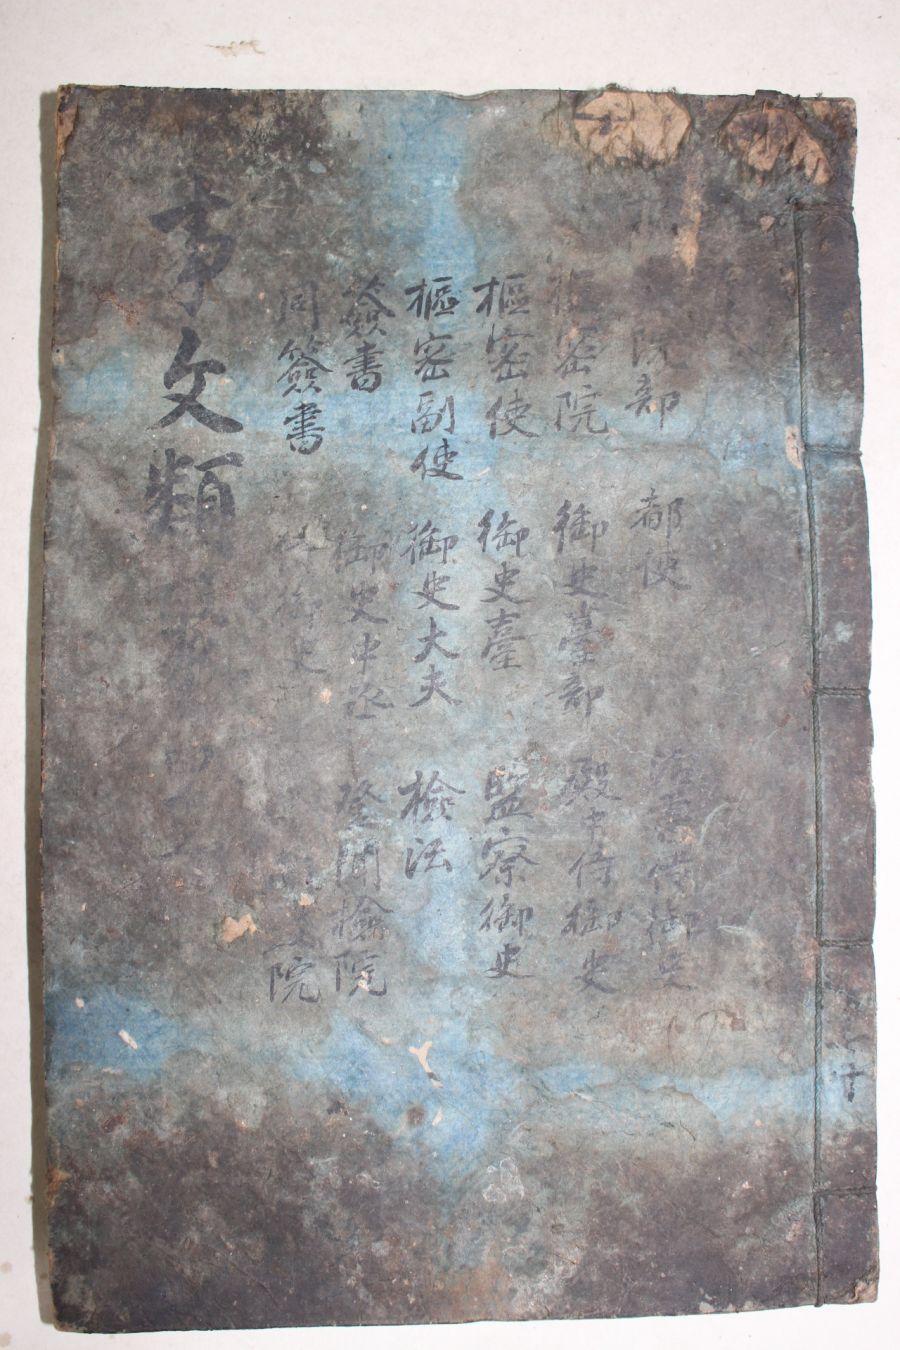 院部 都使 治書侍御史
樞密院 御史臺部 殿中侍御史
樞密使 御史臺 監察御史
樞密副使 御史大夫 檢法
簽書 御史中丞 登聞檢院
同簽書 侍御史 院
事文類